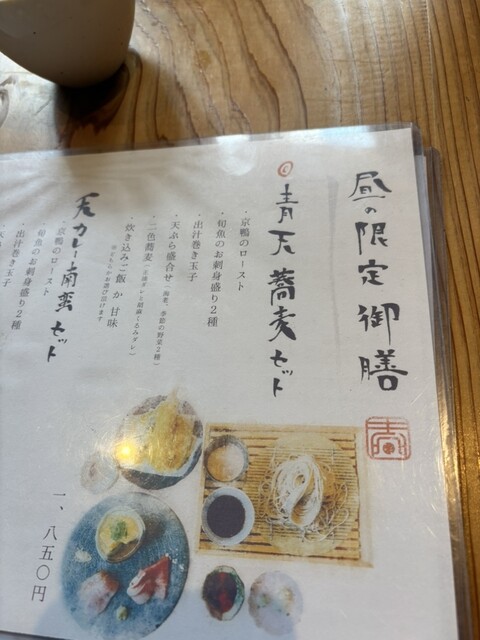 昼の限定御膳
青天蕎麦セット
・京鴨のロースト
・旬魚のお刺身盛り2種
・出汁巻き玉子
・天ぷら盛合せ（海老、季節の野菜2種）
・二色蕎麦
・炊き込みご飯 か 甘味
一、八五〇円
天カレー南蛮セット
・京鴨のロースト
・旬魚のお刺身盛り2種
・出汁巻き玉子